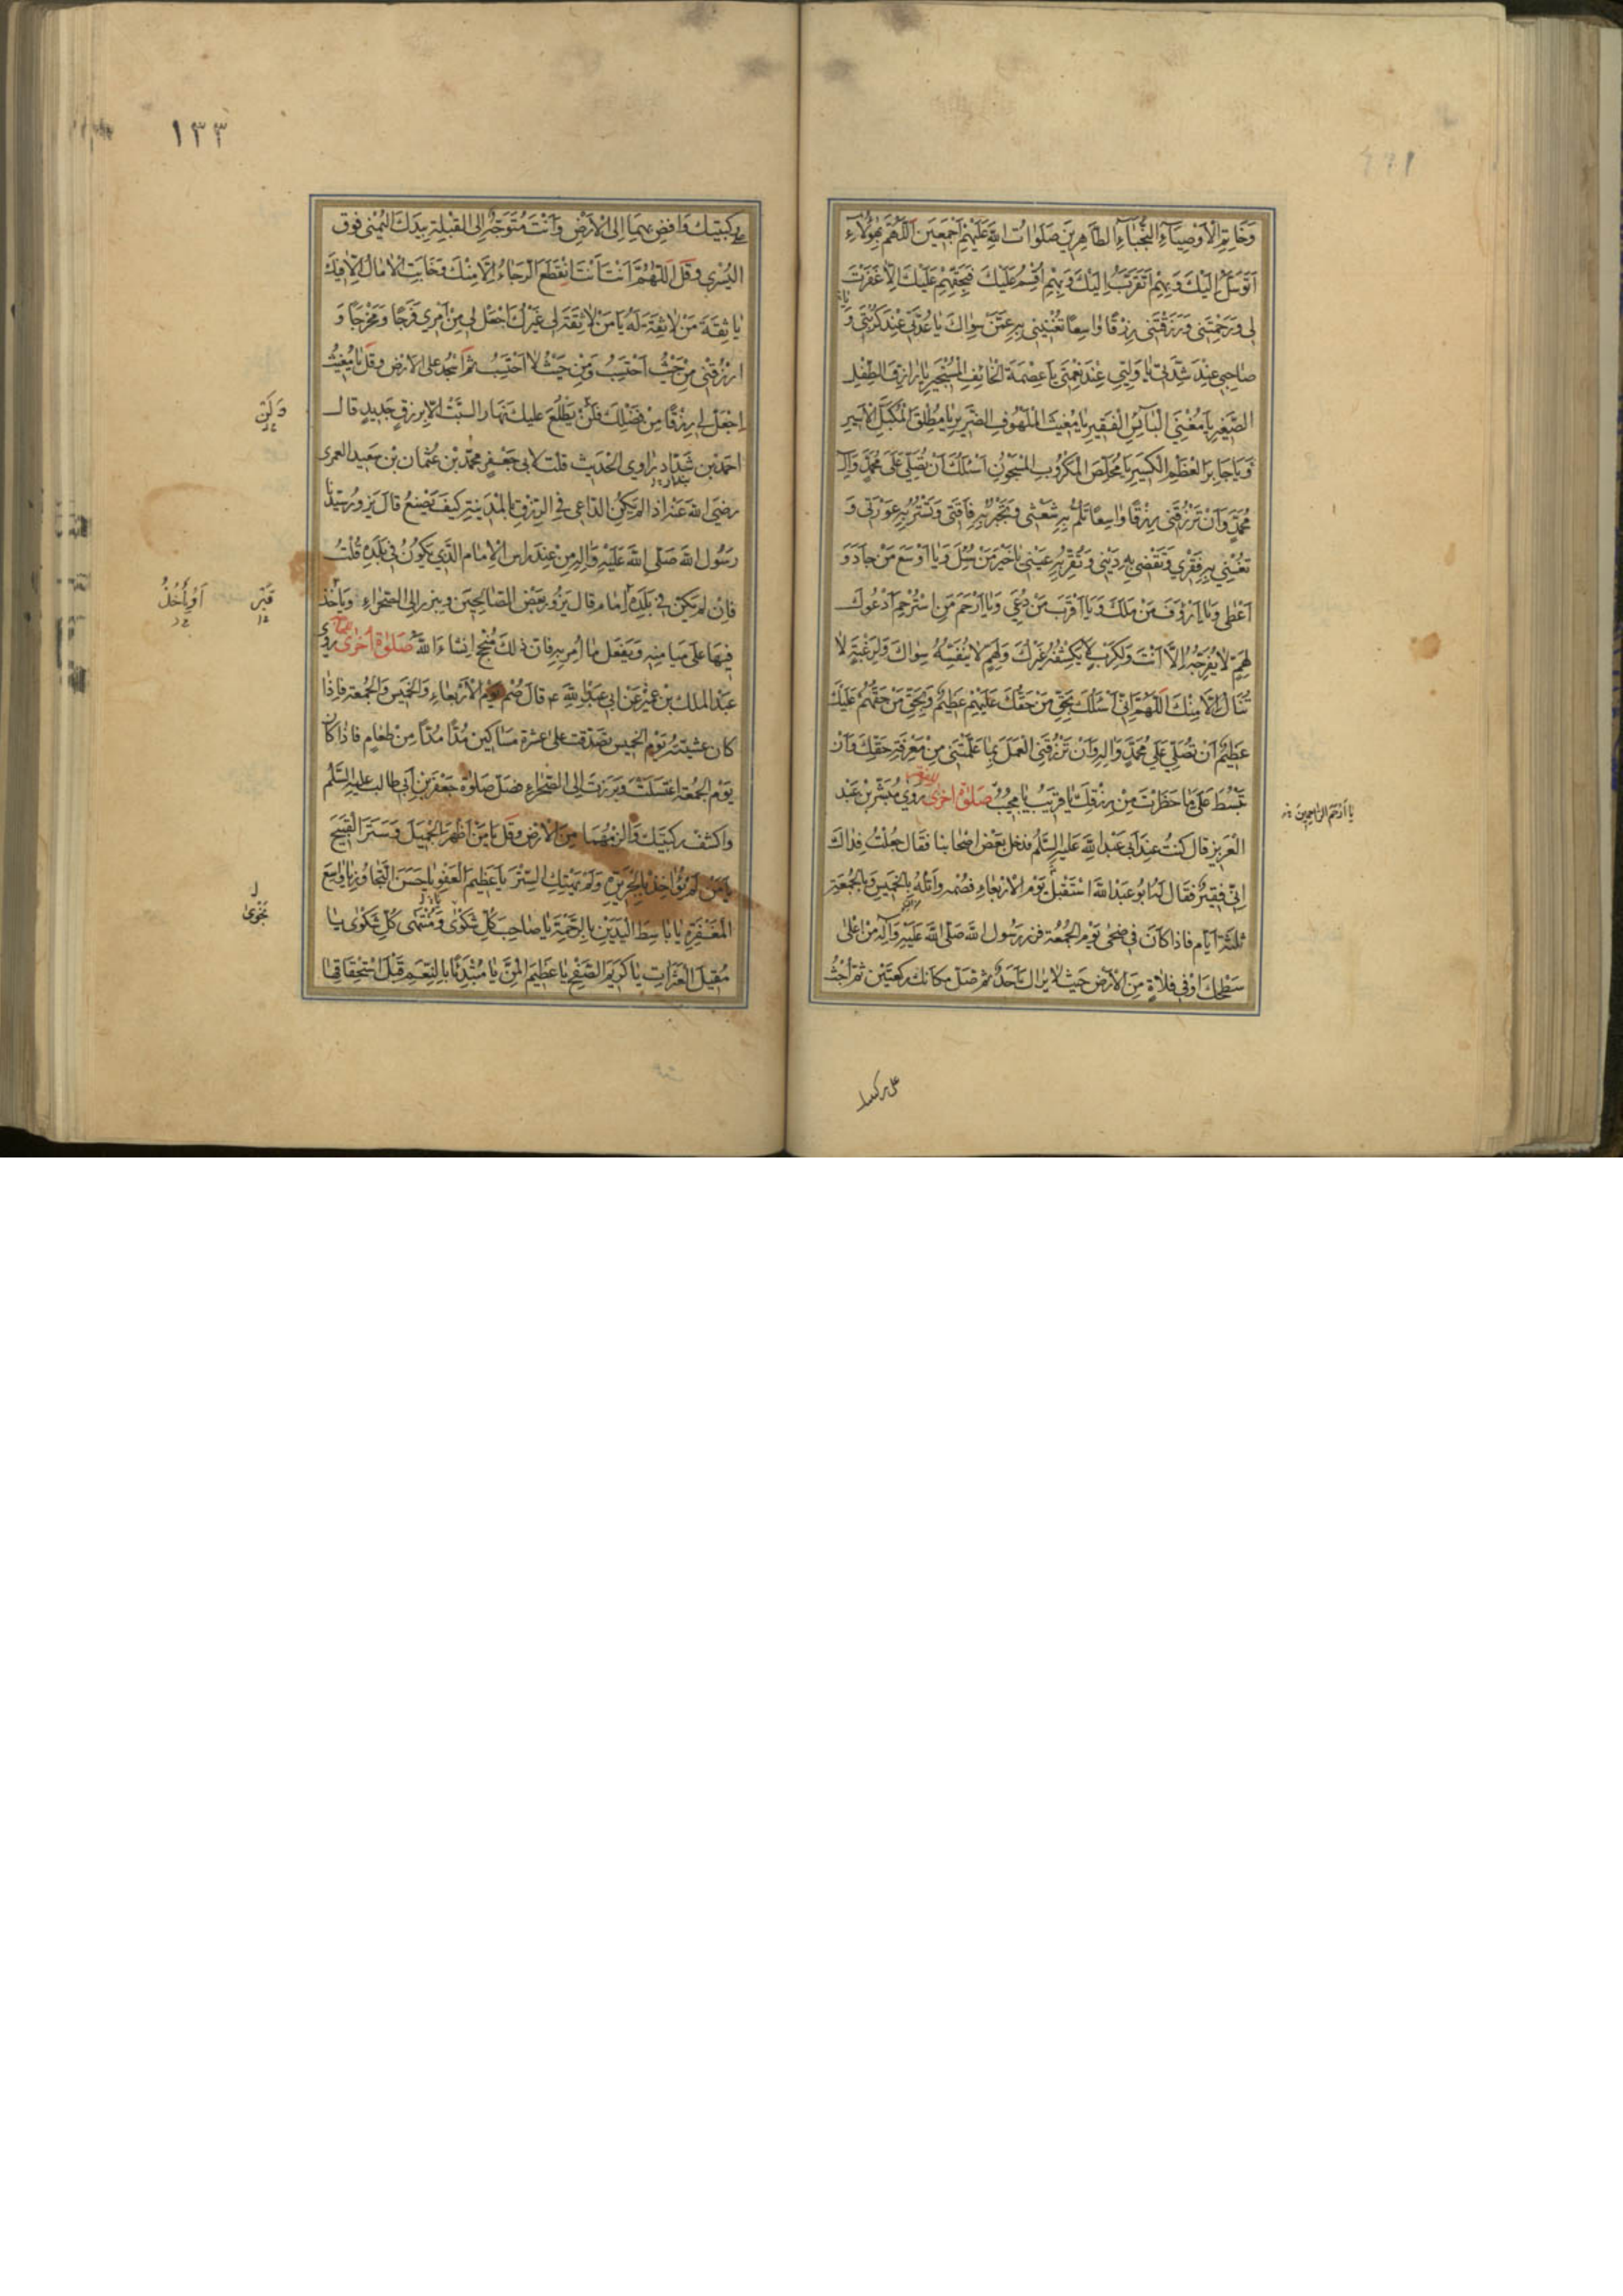 وَخَاتِمِ الْاَوْصِيَآءِ النُّجَبَآءِ الطَّاهِرِينَ صَلَوَاتُ اللهِ عَلَيْهِمْ اَجْمَعِينَ اَللّٰهُمَّ بِهٰؤُلَاءِ
اَتَوَسَّلُ اِلَيْكَ وَبِهِمْ اَتَقَرَّبُ اِلَيْكَ وَبِهِمْ اُقْسِمُ عَلَيْكَ فَبِحَقِّهِمْ عَلَيْكَ اِلَّا غَفَرْتَ
لِي وَرَحِمْتَنِي وَرَزَقْتَنِي رِزْقًا وَاسِعًا تُغْنِينِي بِهِ عَمَّنْ سِوَاكَ يَا عُدَّتِي عِنْدَ كُرْبَتِي وَ يَا
صَاحِبِي عِنْدَ شِدَّتِي يَا وَلِيِّي عِنْدَ نِعْمَتِي يَا عِصْمَةَ الْخَائِفِ الْمُسْتَجِيرِ يَا رَازِقَ الطِّفْلِ
الصَّغِيرِ يَا مُغْنِيَ الْبَآئِسِ الْفَقِيرِ يَا مُغِيثَ الْمَلْهُوفِ الضَّرِيرِ يَا مُطْلِقَ الْمُكَبَّلِ الْاَسِيرِ
وَيَا جَابِرَ الْعَظْمِ الْكَسِيرِ يَا مُخَلِّصَ الْمَكْرُوبِ الْمَسْجُونِ اَسْئَلُكَ اَنْ تُصَلِّيَ عَلَى مُحَمَّدٍ وَآلِ
مُحَمَّدٍ وَاَنْ تَرْزُقَنِي رِزْقًا وَاسِعًا تَلُمُّ بِهِ شَعَثِي وَتَجْبُرُ بِهِ فَاقَتِي وَتَسْتُرُ بِهِ عَوْرَتِي وَ
تُغْنِي بِهِ فَقْرِي وَتَقْضِي بِهِ دَيْنِي وَتُقِرُّ بِهِ عَيْنِي يَا خَيْرَ مَنْ سُئِلَ وَيَا اَوْسَعَ مَنْ جَادَ وَ
اَعْطٰى وَيَا اَرْؤَفَ مَنْ مَلَكَ وَيَا اَقْرَبَ مَنْ دُعِيَ وَيَا اَرْحَمَ مَنِ اسْتُرْحِمَ اَدْعُوكَ
لِهَمٍّ لَا يُفَرِّجُهُ اِلَّا اَنْتَ وَلِكَرْبٍ لَا يَكْشِفُهُ غَيْرُكَ وَلِهَمٍّ لَا يُنَفِّسُهُ سِوَاكَ وَلِرَغْبَةٍ لَا
تُنَالُ اِلَّا مِنْكَ اَللّٰهُمَّ اِنِّي اَسْئَلُكَ بِحَقِّ مَنْ حَقُّكَ عَلَيْهِمْ عَظِيمٌ وَبِحَقِّ مَنْ حَقُّهُمْ عَلَيْكَ
عَظِيمٌ اَنْ تُصَلِّيَ عَلَى مُحَمَّدٍ وَآلِهِ وَاَنْ تَرْزُقَنِي الْعَمَلَ بِمَا عَلَّمْتَنِي مِنْ مَعْرِفَةِ حَقِّكَ وَاَنْ
تَبْسُطَ عَلَيَّ مَا حَظَرْتَ مِنْ رِزْقِكَ يَا قَرِيبُ يَا مُجِيبُ صَلٰوةٌ اُخْرٰى رَوٰى مُبَشِّرُ بْنُ عَبْدِ
يَا اَرْحَمَ الرَّاحِمِينَ
الْعَزِيزِ قَالَ كُنْتُ عِنْدَ اَبِي عَبْدِ اللهِ عَلَيْهِ السَّلٰمُ فَدَخَلَ بَعْضُ اَصْحَابِنَا فَقَالَ جُعِلْتُ فِدَاكَ
اِنِّي فَقِيرٌ فَقَالَ لَهُ اَبُو عَبْدِ اللهِ اسْتَقْبِلْ يَوْمَ الْاَرْبِعَاءِ فَصُمْهُ وَاتْلُهُ بِالْخَمِيسِ وَبِالْجُمُعَةِ
ثَلٰثَةَ اَيَّامٍ فَاِذَا كَانَ فِي ضُحَى يَوْمِ الْجُمُعَةِ فَزُرْ رَسُولَ اللهِ صَلَّى اللهُ عَلَيْهِ وَآلِهِ مِنْ اَعْلٰى
سَطْحِكَ اَوْ فِي فَلَاةٍ مِنَ الْاَرْضِ حَيْثُ لَا يَرَاكَ اَحَدٌ ثُمَّ صَلِّ مَكَانَكَ رَكْعَتَيْنِ ثُمَّ اجْثُ
على ركبتيك
١٣٣
عَلٰى رُكْبَتَيْكَ وَاَفْضِ بِهِمَا اِلَى الْاَرْضِ وَاَنْتَ مُتَوَجِّهٌ اِلَى الْقِبْلَةِ بِيَدِكَ الْيُمْنٰى فَوْقَ
الْيُسْرٰى وَقُلْ اَللّٰهُمَّ اَنْتَ اَنْتَ انْقَطَعَ الرَّجَاءُ اِلَّا مِنْكَ وَخَابَتِ الْاٰمَالُ اِلَّا فِيكَ
يَا ثِقَةَ مَنْ لَا ثِقَةَ لَهُ يَا مَنْ لَا ثِقَةَ لِي غَيْرُكَ اجْعَلْ لِي مِنْ اَمْرِي فَرَجًا وَمَخْرَجًا وَ
ارْزُقْنِي مِنْ حَيْثُ اَحْتَسِبُ وَمِنْ حَيْثُ لَا اَحْتَسِبُ ثُمَّ اسْجُدْ عَلَى الْاَرْضِ وَقُلْ يَا مُغِيثُ
اِجْعَلْ لِي رِزْقًا مِنْ فَضْلِكَ فَلَنْ يَطْلُعَ عَلَيْكَ نَهَارُ السَّبْتِ اِلَّا بِرِزْقٍ جَدِيدٍ قَالَ
اَحْمَدُ بْنُ رَاوِي الْحَدِيثِ قُلْتُ لِاَبِي جَعْفَرٍ مُحَمَّدِ بْنِ عُثْمَانَ بْنِ سَعِيدٍ الْعَمْرِي
رَضِيَ اللهُ عَنْهُ اِذَا لَمْ يَكُنِ الدَّاعِي فِي الرِّزْقِ بِالْمَدِينَةِ كَيْفَ يَصْنَعُ قَالَ يَزُورُ سَيِّدَنَا
رَسُولَ اللهِ صَلَّى اللهُ عَلَيْهِ وَآلِهِ مِنْ عِنْدِ رَاْسِ الْاِمَامِ الَّذِي يَكُونُ فِي بَلَدِهِ قُلْتُ
فَاِنْ لَمْ يَكُنْ فِي بَلَدِهِ اِمَامٌ قَالَ يَزُورُ بَعْضَ الصَّالِحِينَ وَيَبْرُزُ اِلَى الصَّحْرَاءِ وَيَأْخُذُ
قَبْرِ
اَوْيَأْخُذُ
فِيهَا عَلَى مَيَامِنِهِ وَيَفْعَلُ مَا اُمِرَ بِهِ فَاِنَّ ذٰلِكَ مُنْجِحٌ اِنْشَاءَ اللهُ صَلٰوةٌ اُخْرٰى رَوٰى
عَبْدُ الْمَلِكِ بْنُ عُمَيْرٍ عَنْ اَبِي عَبْدِ اللهِ ع قَالَ صُمْ يَوْمَ الْاَرْبِعَاءِ وَالْخَمِيسِ وَالْجُمُعَةِ فَاِذَا
كَانَ عَشِيَّةُ يَوْمِ الْخَمِيسِ تَصَدَّقْتَ عَلَى عَشَرَةِ مَسَاكِينَ مُدًّا مُدًّا مِنْ طَعَامٍ فَاِذَا كَانَ
يَوْمُ الْجُمُعَةِ اغْتَسَلْتَ وَبَرَزْتَ اِلَى الصَّحْرَاءِ فَصَلِّ صَلٰوةَ جَعْفَرِ بْنِ اَبِي طَالِبٍ عَلَيْهِ السَّلٰمُ
وَاكْشِفْ رُكْبَتَيْكَ وَالْزِمْهُمَا مِنَ الْاَرْضِ وَقُلْ يَا مَنْ اَظْهَرَ الْجَمِيلَ وَسَتَرَ الْقَبِيحَ
يَا مَنْ لَمْ يُؤَاخِذْ بِالْجَرِيرَةِ وَلَمْ يَهْتِكِ السِّتْرَ يَا عَظِيمَ الْعَفْوِ يَا حَسَنَ التَّجَاوُزِ يَا وَاسِعَ
الْمَغْفِرَةِ يَا بَاسِطَ الْيَدَيْنِ بِالرَّحْمَةِ يَا صَاحِبَ كُلِّ شَكْوٰى وَمُنْتَهٰى كُلِّ شَكْوٰى يَا
نَجْوٰى
مُقِيلَ الْعَثَرَاتِ يَا كَرِيمَ الصَّفْحِ يَا عَظِيمَ الْمَنِّ يَا مُبْتَدِئًا بِالنِّعَمِ قَبْلَ اسْتِحْقَاقِهَا